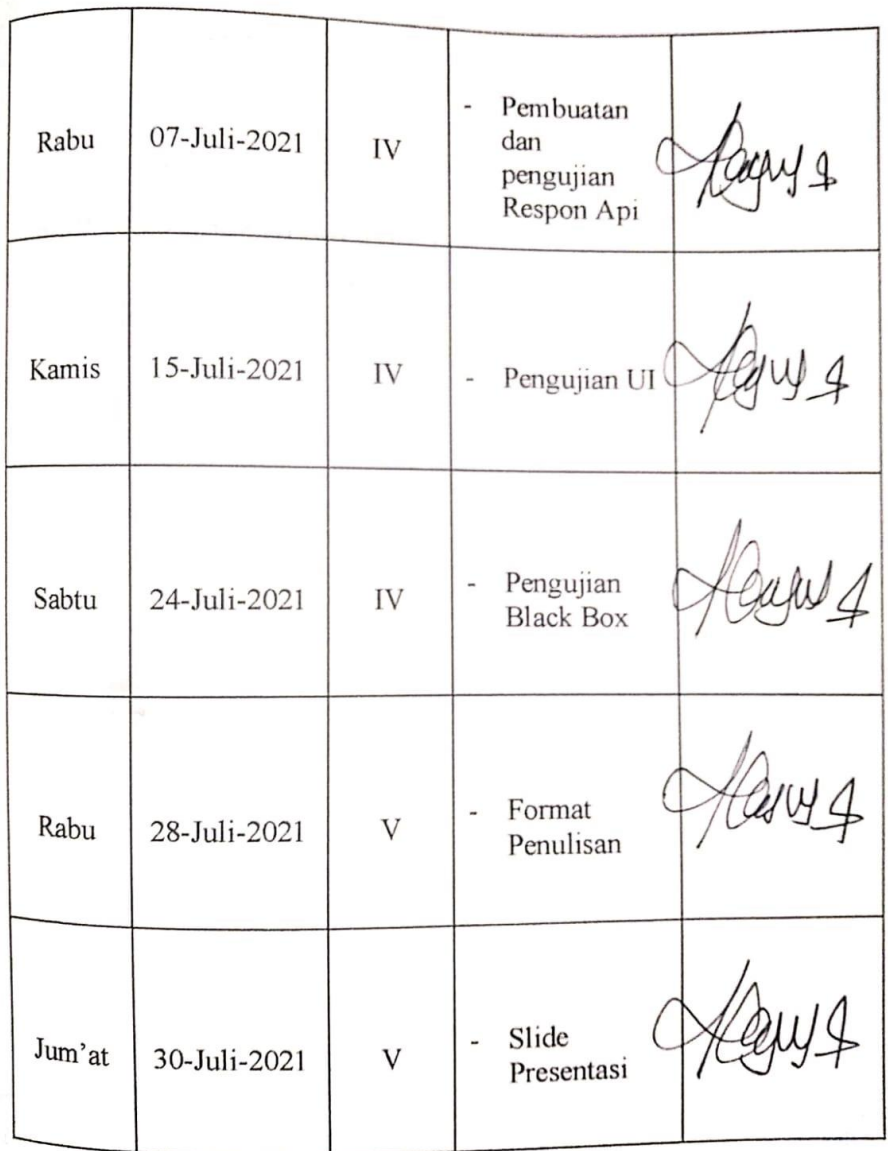 Rabu
07-Juli-2021
IV
- Pembuatan
dan
pengujian
Respon Api
Kamis
15-Juli-2021
IV
- Pengujian UI
Sabtu
24-Juli-2021
IV
- Pengujian
Black Box
Rabu
28-Juli-2021
V
- Format
Penulisan
Jum'at
30-Juli-2021
V
- Slide
Presentasi